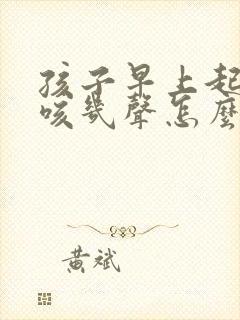 孩子早上起
咳幾聲怎麼
黃斌